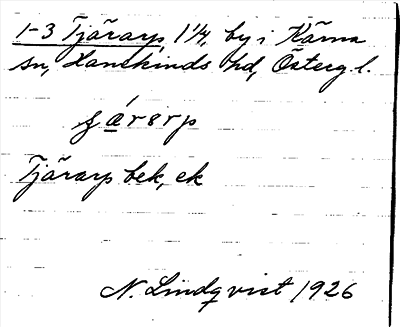 1-3 Tjärarp, 1 1/4, by i Kärna
sn, Hanekinds hd, Östergl.
Tjärarp bek, ek
N. Lindqvist 1926